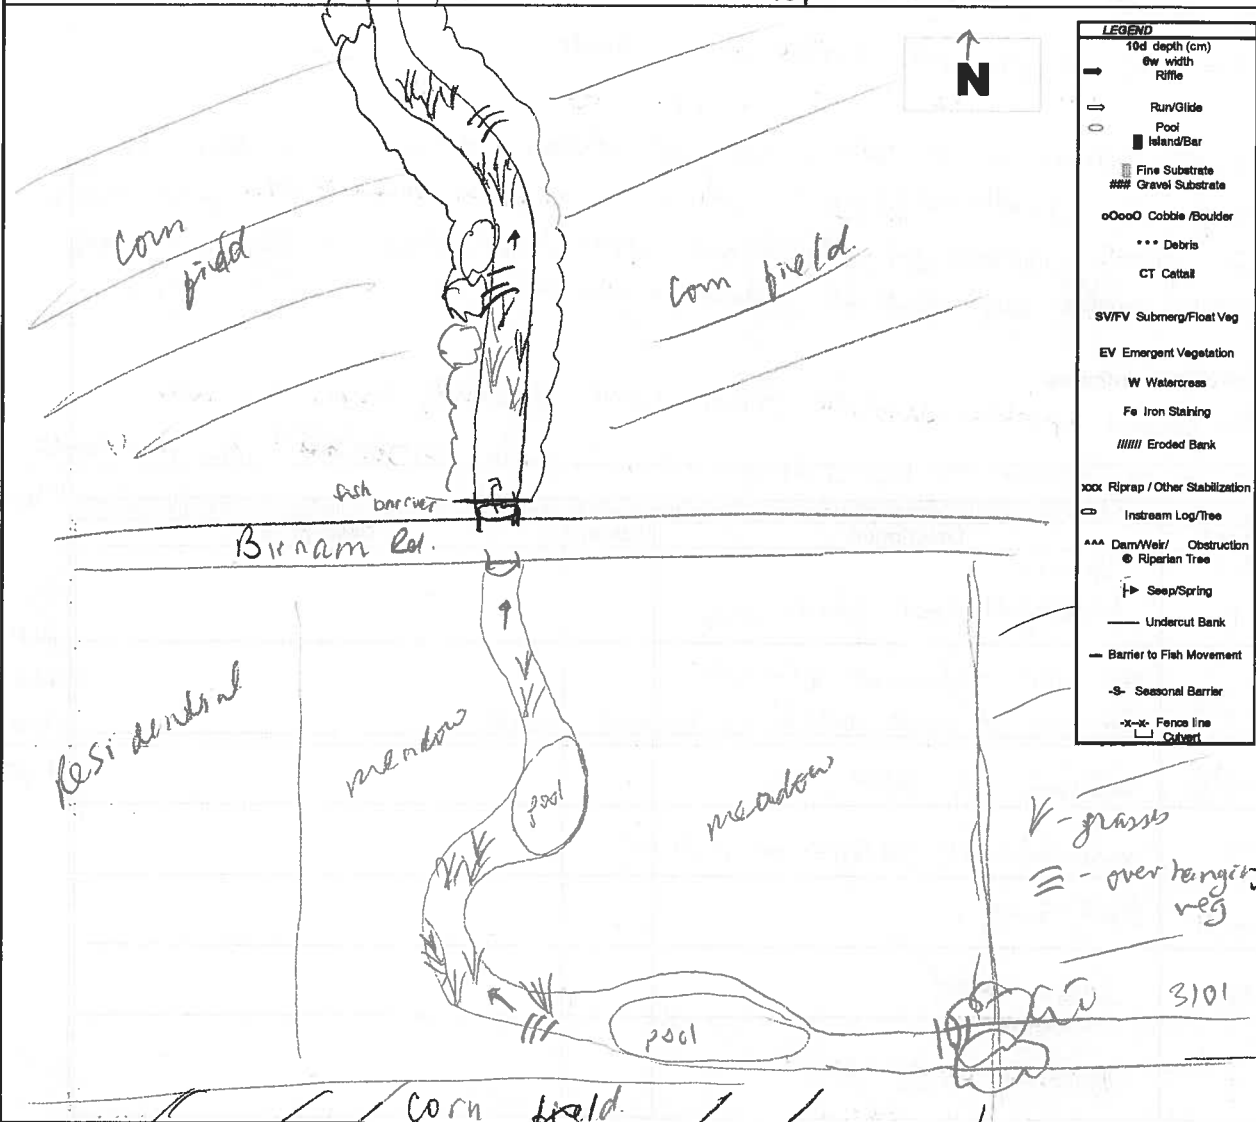 N
LEGEND
10d depth (cm)
6w width
Riffle
Run/Glide
Pool
Island/Bar
Fine Substrate
### Gravel Substrate
oOooO Cobble /Boulder
*** Debris
CT Cattail
SV/FV Submerg/Float Veg
EV Emergent Vegetation
W Watercress
Fe Iron Staining
/////// Eroded Bank
xxx Riprap / Other Stabilization
Instream Log/Tree
^^^ Dam/Weir/ Obstruction
Riparian Tree
Seep/Spring
Undercut Bank
Barrier to Fish Movement
-S- Seasonal Barrier
-x-x- Fence line
Culvert
Corn
field
Corn field.
fish
barrier
Birnam Rd.
Residential
meadow
pool
meadow
V - grasses
- over hanging
veg
pool
3101
Corn field.